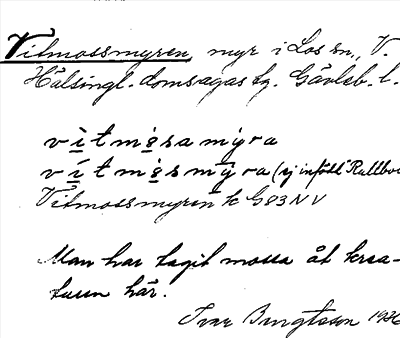 Vitmossmyren, myr i Los sn, V.
Hälsingl. domsagas tg. Gävleb. l.
vìtmo̱sa my̱ra
vítmo̱smýra (ej inföll Rallbo
Vitmossmyren k G83NV
Man har tagit mossa åt krea-
turen här.
Ivar Bengtsson 1936